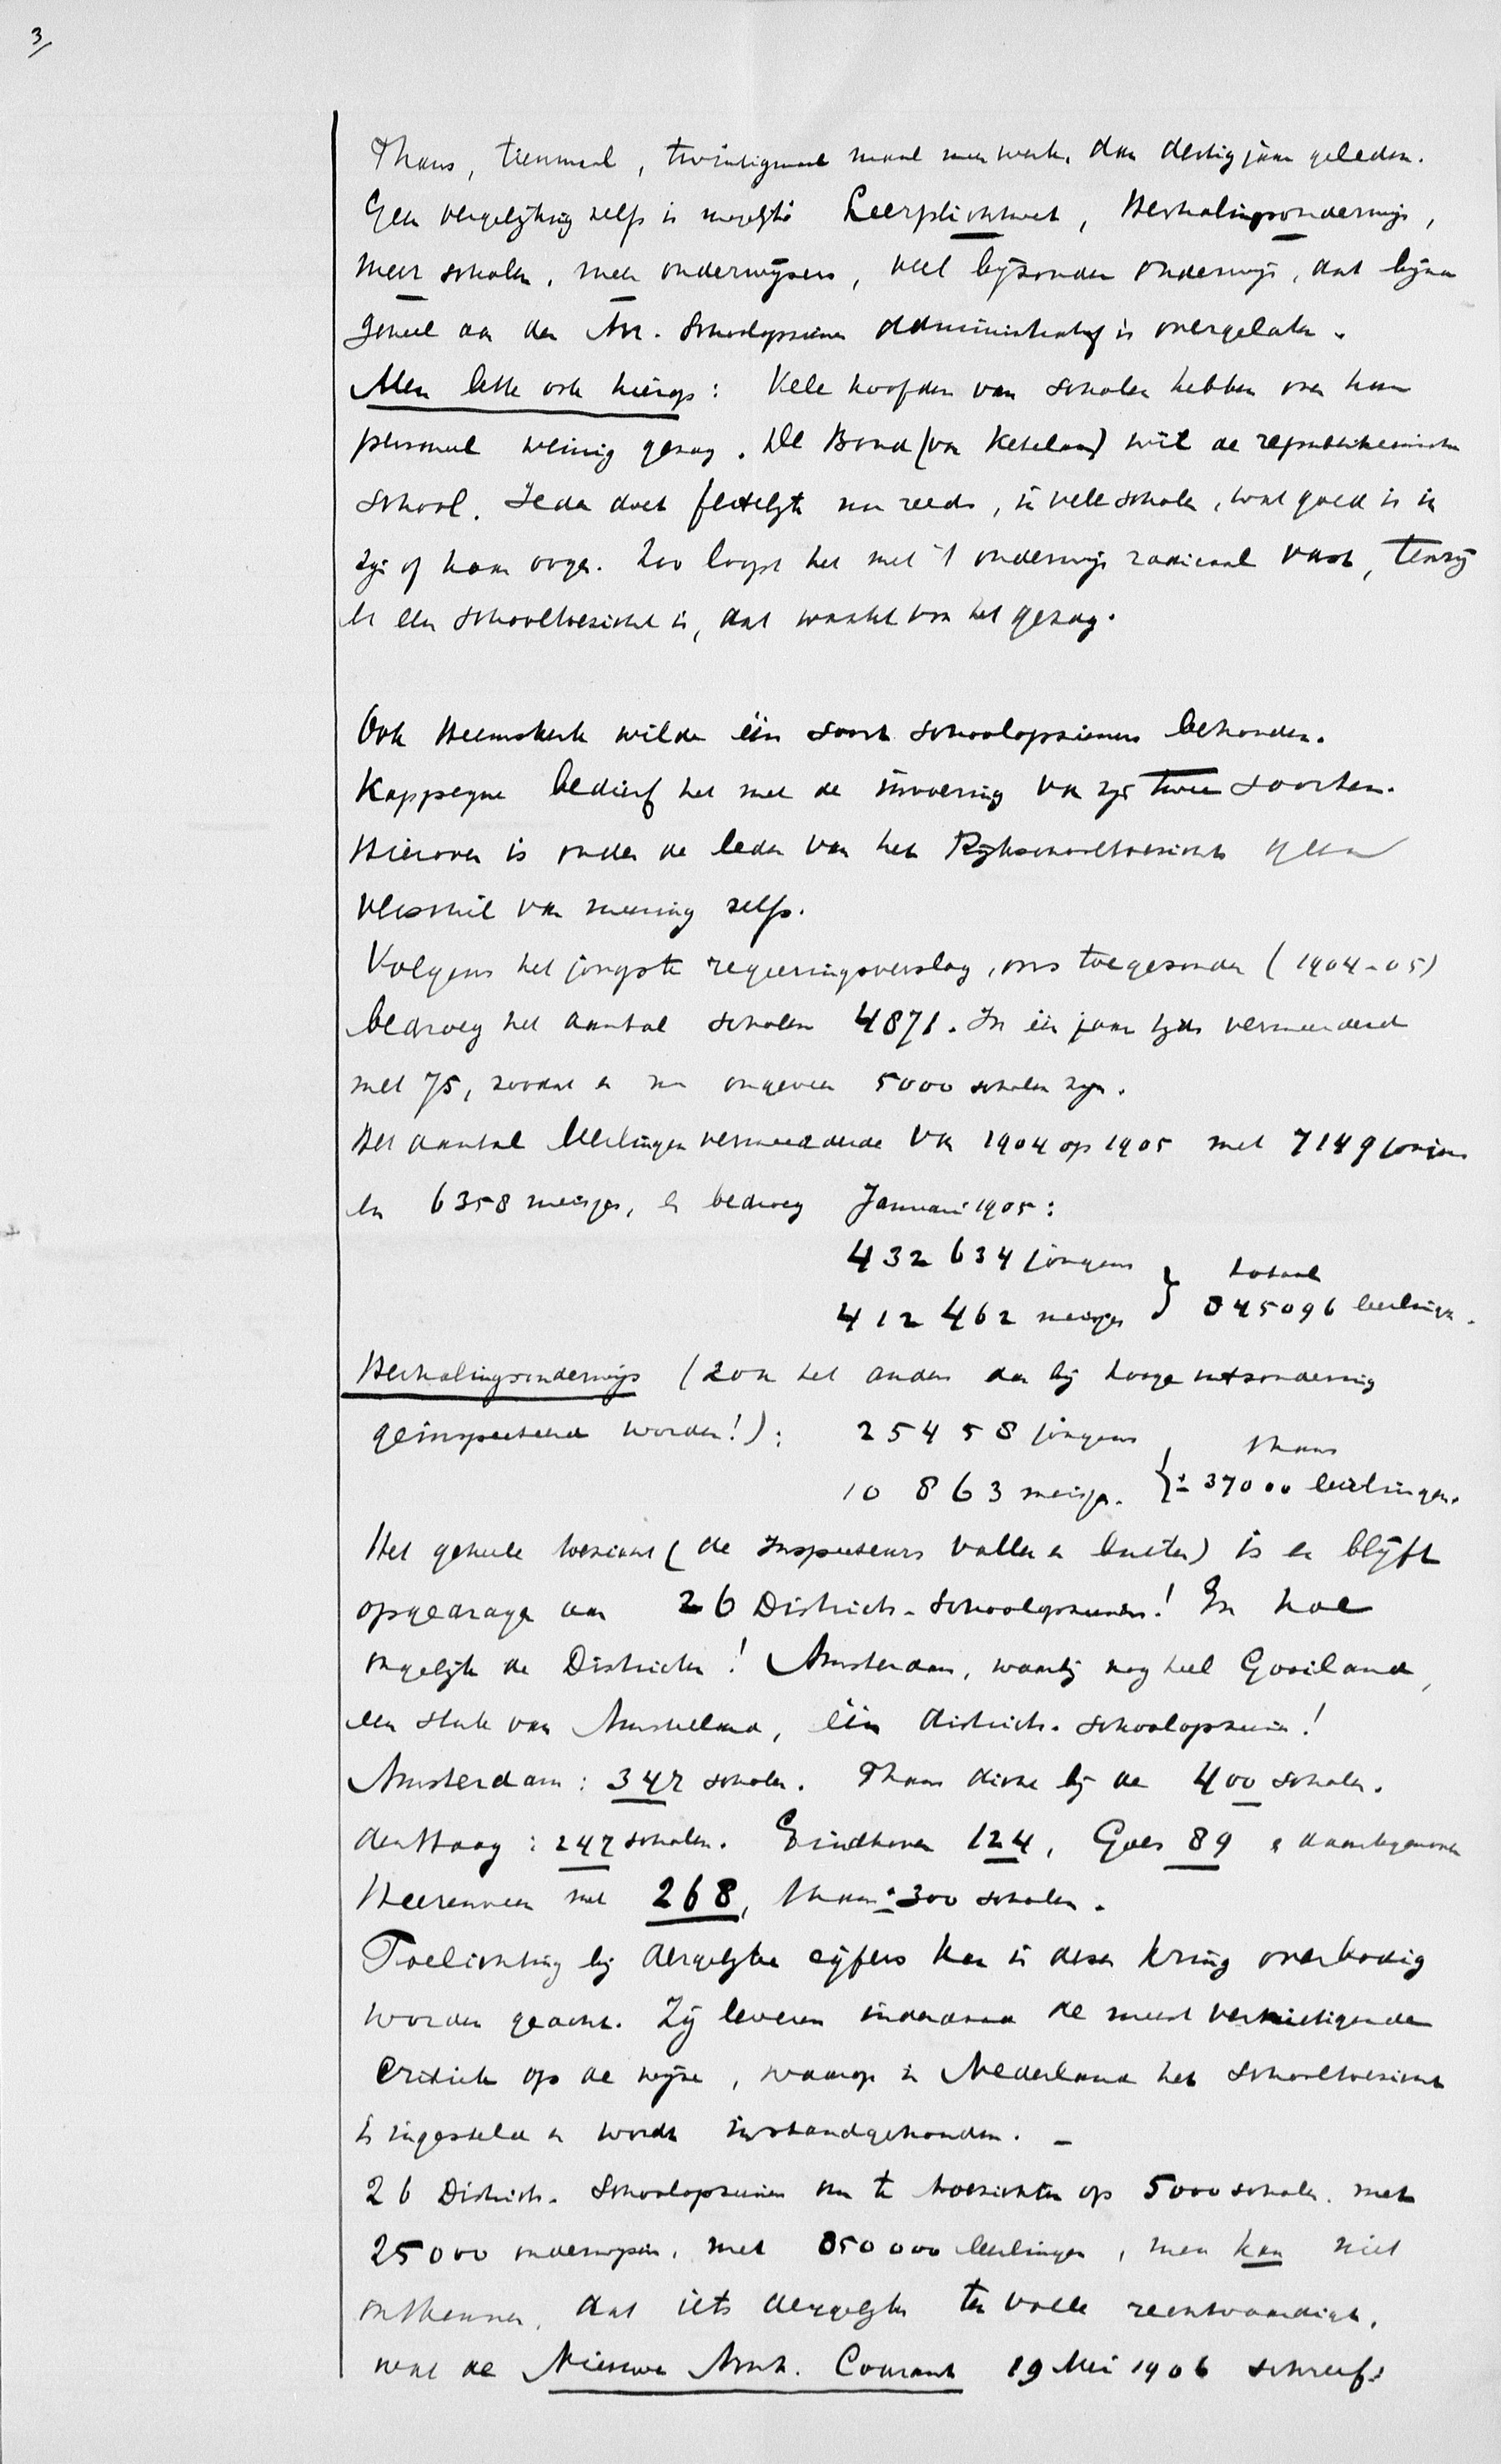 3/
Thans, tienmaal, twintigmaal maal meer werk, dan dertig jaar geleden.
Geen vergelijking zelfs is mogelijk Leerplichtwet, Herhalingsonderwijs,
meer scholen, meer onderwijzers, veel bijzonder onderwijs, dat bijna
geheel aan den Arr. Schoolopziener administratief is overgelaten.
Men lette ook hierop: Vele hoofden van scholen hebben over hun
personeel weinig gezag. De Bond (van Ketelaar) wil de republikeinsche
school. Ieder doet feitelijk nu reeds, in vele scholen, wat goed is in
zijn of haar oogen. Zoo loopt het met 't onderwijs radicaal vast, tenzij
er een schooltoezicht is, dat waakt voor het gezag.
Ook Heemskerk wilde één soort schoolopzieners behouden.
Kappeyne bedierf het met de invoering van zijn twee soorten.
Hierover is onder de leden van het Rijksschooltoezicht geen
verschil van meening zelfs.
Volgens het jongste regeeringsverslag, ons toegezonden (1904-05)
bedroeg het aantal scholen 4871. In één jaar tijds vermeerderd
met 75, zoodat er nu ongeveer 5000 scholen zijn.
Het aantal leerlingen vermeerderde van 1904 op 1905 met 7149 jongens
en 6358 meisjes, en bedroeg Januari 1905:
432634 jongens } totaal
412462 meisjes } 845096 leerlingen.
Herhalingsonderwijs (zou het anders dan bij hooge uitzondering
geïnspecteerd worden!): 25458 jongens, thans
10863 meisjes. {± 37000 leerlingen.
Het geheele toezicht (de Inspecteurs vallen er buiten) is en blijft
opgedragen aan 26 District-Schoolopzieners! En hoe
ongelijk de Districten! Amsterdam, waarbij nog heel Gooiland,
een stuk van Amstelland, één district-schoolopziener!
Amsterdam: 347 scholen. Thans dicht bij de 400 scholen.
den Haag: 247 scholen. Eindhoven 124, Goes 89 en daartegenover
Heerenveen met 268, thans ± 300 scholen.
Toelichting bij dergelijke cijfers kan in dezen kring overbodig
worden geacht. Zij leveren inderdaad de meest vernietigende
critiek op de wijze, waarop in Nederland het schooltoezicht
is ingesteld en wordt instandgehouden. -
26 District-Schoolopzieners om te toezichten op 5000 scholen, met
25000 onderwijzers, met 850000 leerlingen, men kan niet
ontkennen, dat iets dergelijks ten volle rechtvaardigt,
wat de Nieuwe Arnh. Courant 19 Mei 1906 schreef: